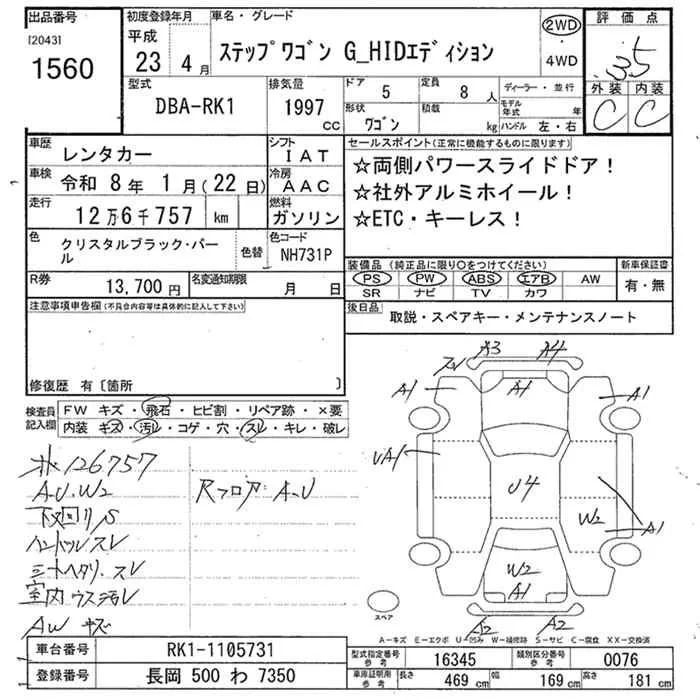 出品番号
[2043]
1560
初度登録年月
平成
23年 4月
車名・グレード
ステップワゴン G_HIDエディション
2WD
・
4WD
評価点
3.5
外装 内装
C C
型式
DBA-RK1
排気量
1997
cc
ドア
5
定員
8人
形状
ワゴン
積載
kg
ディーラー・並行
モデル
年式 年
ハンドル 左・右
車歴
レンタカー
シフト
IAT
車検
令和 8年 1月(22日)
冷房
AAC
走行
12万6千757 km
燃料
ガソリン
色
クリスタルブラック・パー
ル
色替
色コード
NH731P
R券
13,700円
名変通知期限
月 日
セールスポイント(正常に機能するものに限ります)
☆両側パワースライドドア!
☆社外アルミホイール!
☆ETC・キーレス!
装備品(純正品に限り○をつけてください)
PS PW ABS エアB AW
SR ナビ TV カワ
新車保証書
有・無
後日品
取説・スペアキー・メンテナンスノート
注意事項申告欄(不具合内容等は具体的に記入して下さい)
修復歴 有〔箇所 〕
検査員
記入欄
FW キズ・飛石・ヒビ割・リペア跡・×要
内装 キズ・汚レ・コゲ・穴・スレ・キレ・破レ
126757
A.U.W2
Rフロア A.U
下回り S
ハンドルスレ
室内ウス汚レ
AW キズ
A3 A4
A1 A1 A1
UA1 U4
W2 A1
W2
A1
A2 A2
スペア
A−キズ E−エクボ U−凹み W−補修跡 S−サビ C−腐食 XX−交換済
車台番号
RK1-1105731
登録番号
長岡 500 わ 7350
型式指定番号
参考
16345
類別区分番号
参考
0076
車庫証明用
参考
長さ
469 cm
幅
169 cm
高さ
181 cm